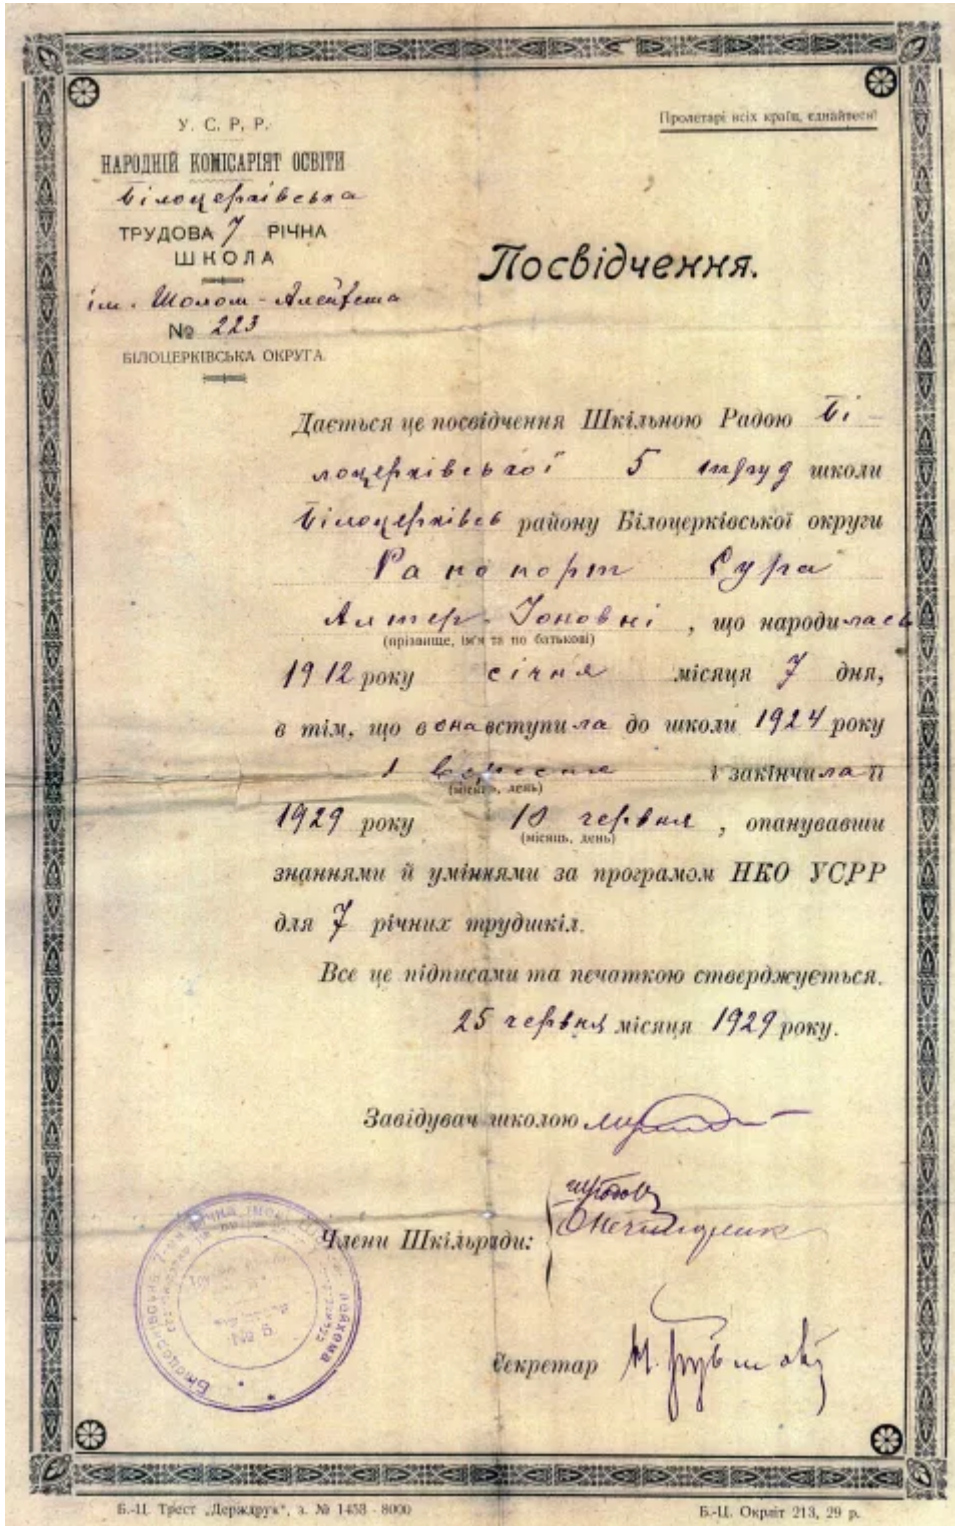 У. С. Р. Р.
НАРОДНІЙ КОМІСАРІЯТ ОСВІТИ
Білоцерківська
ТРУДОВА 7 РІЧНА
ШКОЛА
ім. Шолом-Алейхема
№ 223
БІЛОЦЕРКІВСЬКА ОКРУГА.
Пролетарі всіх країн, єднайтеся!
Посвідчення.
Дається це посвідчення Шкільною Радою Бі
лоцерківської 5 труд школи
Білоцерківсь району Білоцерківської округи
Рапопорт Сура
Алтер-Іоновні, що народилась
(прізвище, ім'я та по батькові)
1912 року січня місяця 7 дня,
в тім, що вона вступила до школи 1924 року
1 вересня і закінчила її
(місяць, день)
1929 року 10 червня, опанувавши
(місяць, день)
знаннями й уміннями за програмом НКО УСРР
для 7 річних трудшкіл.
Все це підписами та печаткою стверджується.
25 червня місяця 1929 року.
Завідувач школою
Члени Шкільради:
Секретар
№ 5
Б.-Ц. Трест „Держдрук", з. № 1453 - 8000
Б.-Ц. Окрліт 213, 29 р.